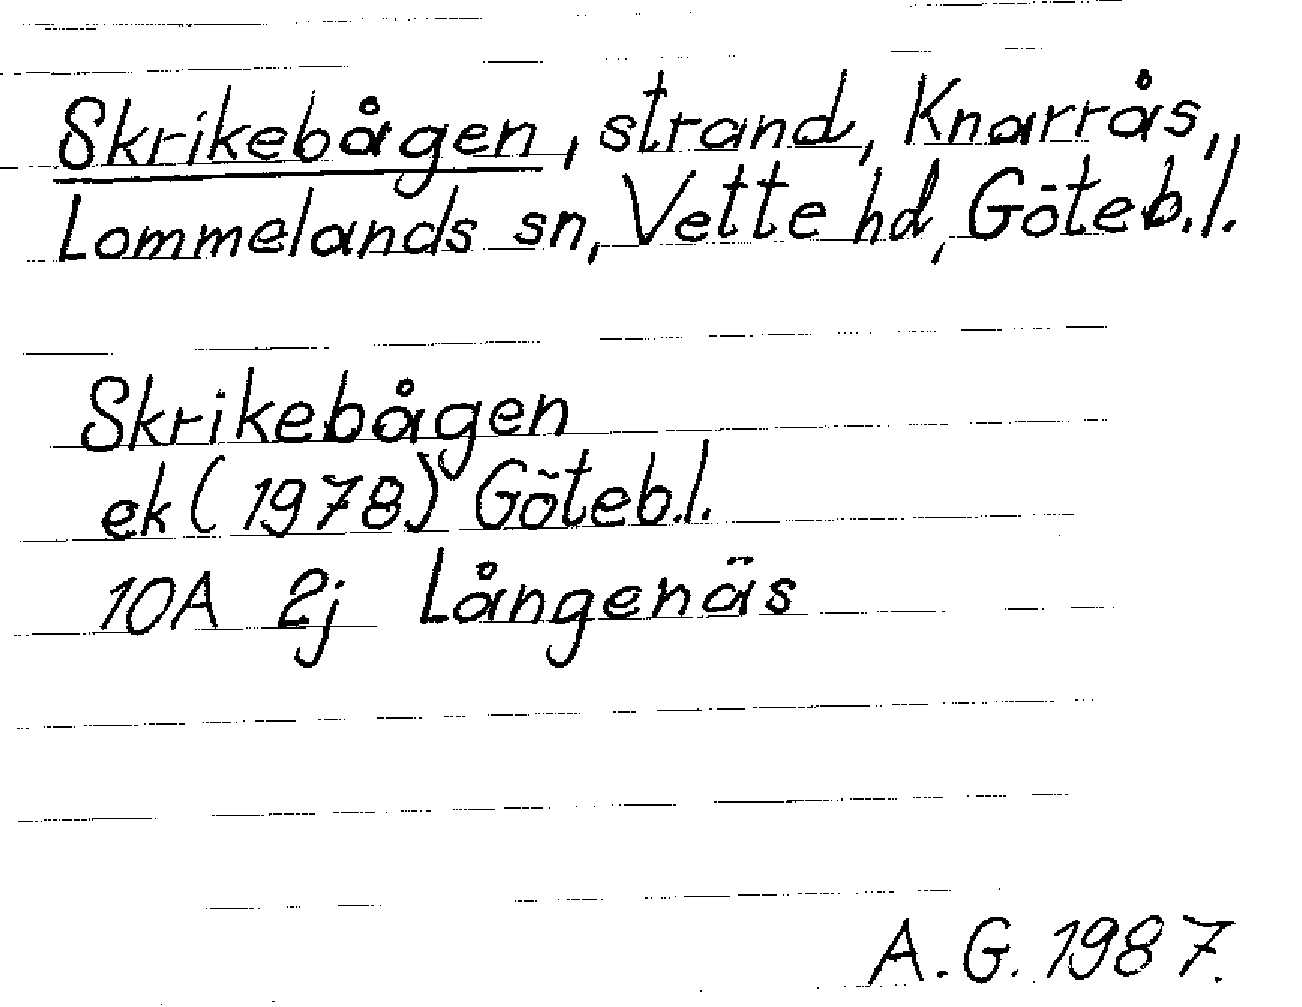 Skrikebågen, strand, Knarrås,
Lommelands sn, Vette hd, Göteb.l.
Skrikebågen
ek (1978) Göteb.l.
10A 2j Långenäs
A.G. 1987.